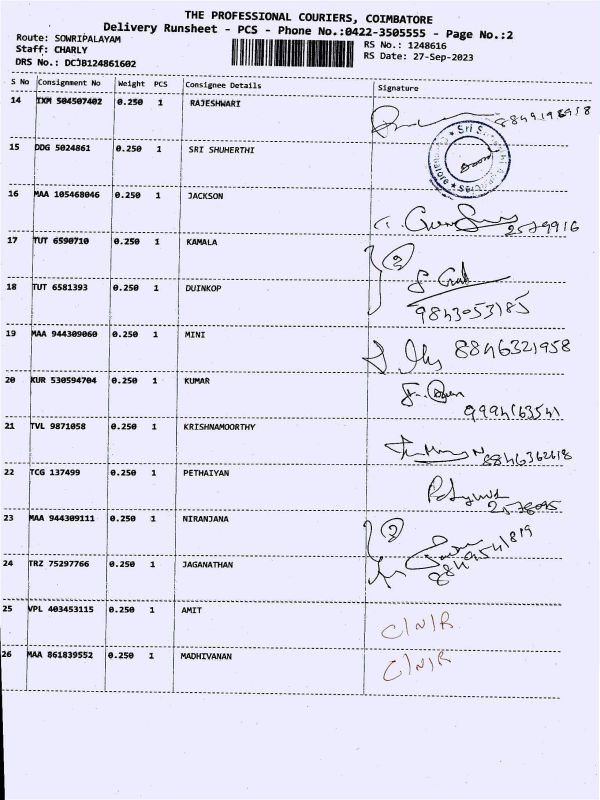 THE PROFESSIONAL COURIERS, COIMBATORE
Delivery Runsheet - PCS - Phone No.:0422-3505555 - Page No.:2
Route: SOWRIPALAYAM RS No.: 1248616
Staff: CHARLY RS Date: 27-Sep-2023
DRS No.: DCJB124861602
S No Consignment No Weight PCS Consignee Details Signature
14 IXM 504507402 0.250 1 RAJESHWARI
15 DDG 5024861 0.250 1 SRI SHUHERTHI
16 MAA 105468046 0.250 1 JACKSON
2579916
17 TUT 6590710 0.250 1 KAMALA
2
18 TUT 6581393 0.250 1 DUINKOP
9843053185
19 MAA 944309060 0.250 1 MINI
8846321958
20 KUR 530594704 0.250 1 KUMAR
9994163541
21 TVL 9871058 0.250 1 KRISHNAMOORTHY
22 TCG 137499 0.250 1 PETHAIYAN
23 MAA 944309111 0.250 1 NIRANJANA
2
24 TRZ 75297766 0.250 1 JAGANATHAN
25 VPL 403453115 0.250 1 AMIT C/N/R
26 MAA 861839552 0.250 1 MADHIVANAN C/N/R